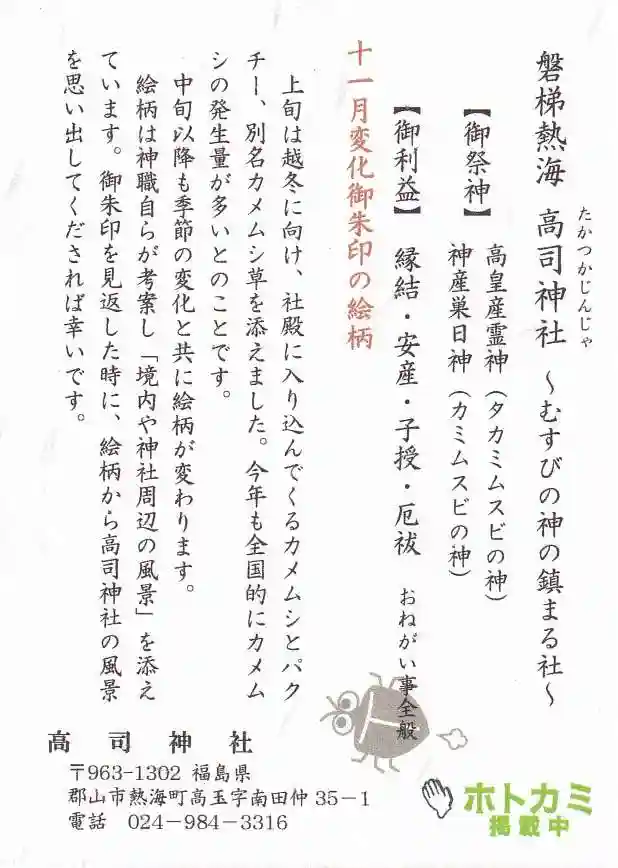 磐梯熱海 高司神社 ～むすびの神の鎮まる社～
たかつかじんじゃ
【御祭神】 高皇産霊神(タカミムスビの神)
神産巣日神(カミムスビの神)
【御利益】 縁結・安産・子授・厄祓 おねがい事全般
十一月変化御朱印の絵柄
上旬は越冬に向け、社殿に入り込んでくるカメムシとパク
チー、別名カメムシ草を添えました。今年も全国的にカメム
シの発生量が多いとのことです。
中旬以降も季節の変化と共に絵柄が変わります。
絵柄は神職自らが考案し「境内や神社周辺の風景」を添え
ています。御朱印を見返した時に、絵柄から高司神社の風景
を思い出してくだされば幸いです。
高司神社
〒963-1302 福島県
郡山市熱海町高玉字南田仲35－1
電話 024－984－3316
ホトカミ
掲載中